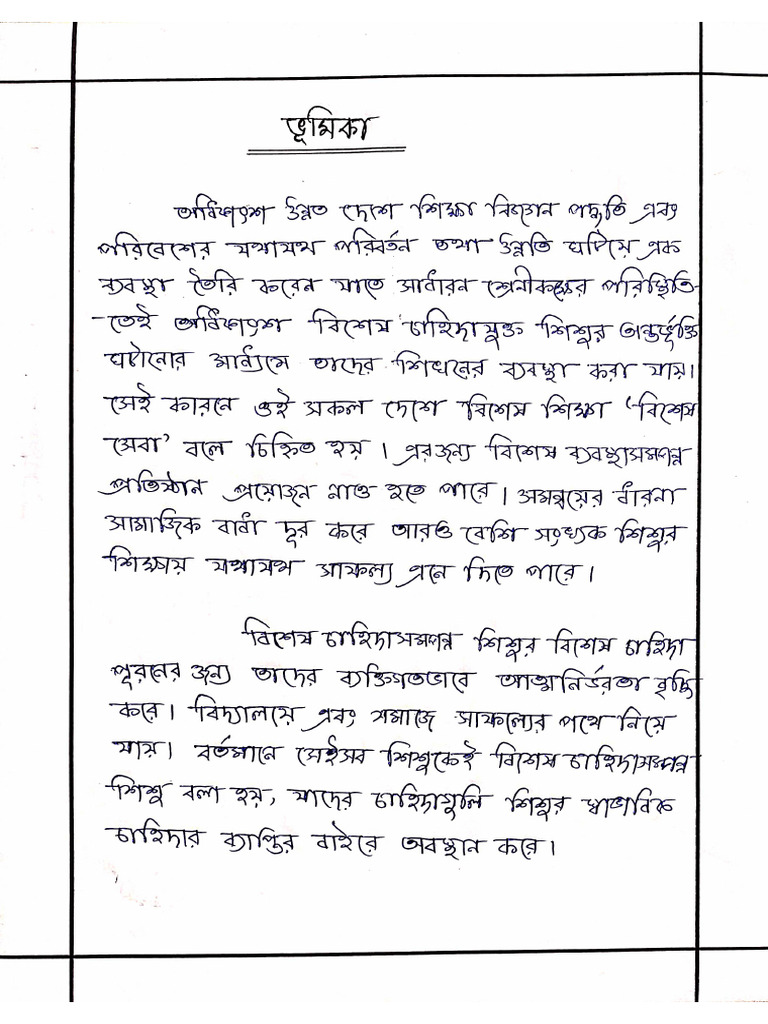 ভূমিকা
অধিকাংশ উন্নত দেশে শিক্ষা বিজ্ঞান পদ্ধতি এবং
পরিবেশের যথাযথ পরিবর্তন তথা উন্নতি ঘটিয়ে এক
ব্যবস্থা তৈরি করেন যাতে সাধারন শ্রেনীকক্ষের পরিস্থিতি-
-তেই অধিকাংশ বিশেষ চাহিদাযুক্ত শিশুর অন্তর্ভূক্তি
ঘটানোর মাধ্যমে তাদের শিখনের ব্যবস্থা করা যায়।
সেই কারনে ওই সকল দেশে বিশেষ শিক্ষা ‘বিশেষ
সেবা’ বলে চিহ্নিত হয়। এরজন্য বিশেষ ব্যবস্থাসম্পন্ন
প্রতিষ্ঠান প্রয়োজন নাও হতে পারে। সমন্বয়ের ধারনা
সামাজিক বাধা দূর করে আরও বেশি সংখ্যক শিশুর
শিক্ষায় যথাযথ সাফল্য এনে দিতে পারে।
বিশেষ চাহিদাসম্পন্ন শিশুর বিশেষ চাহিদা
পূরনের জন্য তাদের ব্যক্তিগতভাবে আত্মনির্ভরতা বৃদ্ধি
করে। বিদ্যালয়ে এবং সমাজে সাফল্যের পথে নিয়ে
যায়। বর্তমানে সেইসব শিশুকেই বিশেষ চাহিদাসম্পন্ন
শিশু বলা হয়, যাদের চাহিদাগুলি শিশুর স্বাভাবিক
চাহিদার ব্যাপ্তির বাইরে অবস্থান করে।